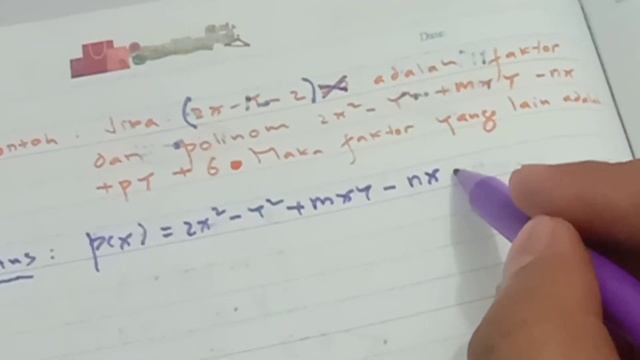 Date:
ontoh: Jika (2x-y-2) adalah faktor
dari polinom 2x²-y²+mxy-nx
+py+6. Maka faktor yang lain adala
ans: p(x) = 2x²-y²+mxy-nx